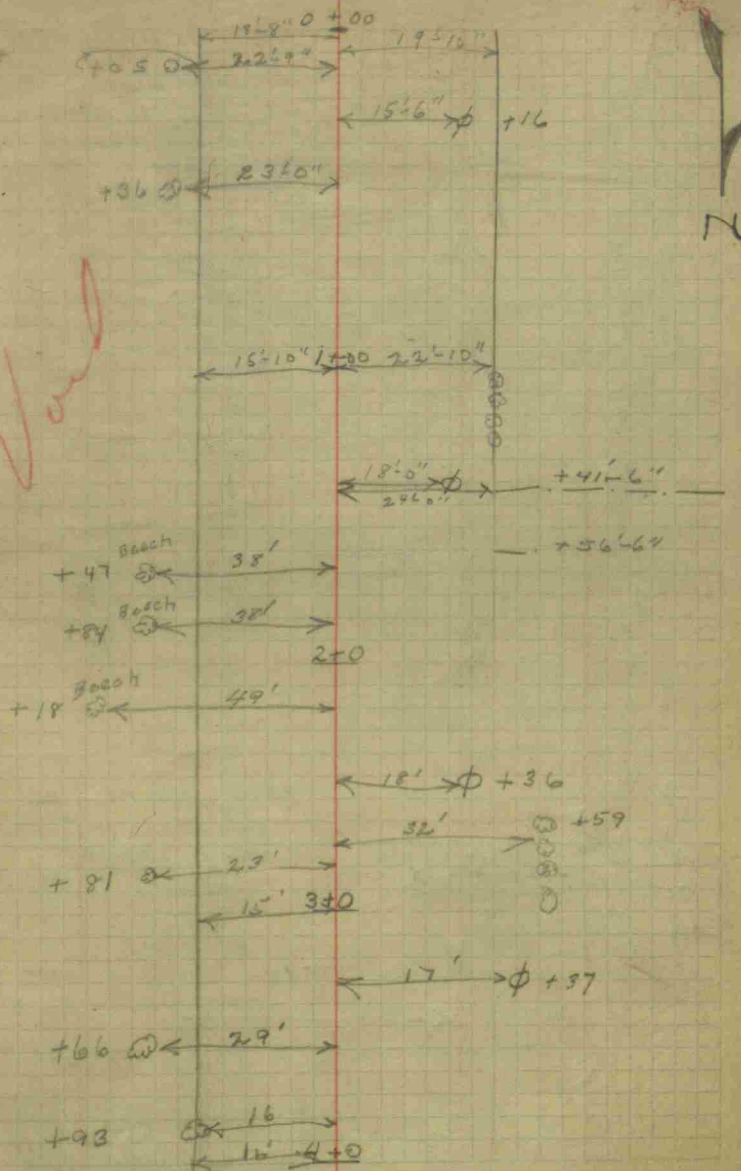 18'-8" 0+00
19'-10"
+05 22'-9"
15'-6" ϕ +16
+36 23'-0"
N
15'-10" 1+00 22'-10"
18'-0" ϕ +41'-6"
24'-0"
+56'-6"
+47 Beech 38'
+84 Beech 38'
2+0
+18 Beech 49'
18' ϕ +36
32' +59
+81 23'
15' 3+0
17' ϕ +37
+66 29'
+93 16
16' 4+0